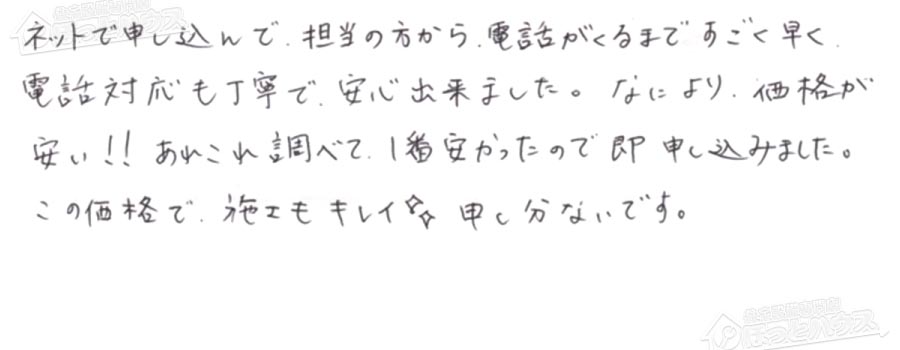 ネットで申し込んで、担当の方から、電話がくるまですごく早く、
電話対応も丁寧で、安心出来ました。なにより、価格が
安い!! あれこれ調べて、1番安かったので即申し込みました。
この価格で、施工もキレイ✧✧ 申し分ないです。
ほっとハウス